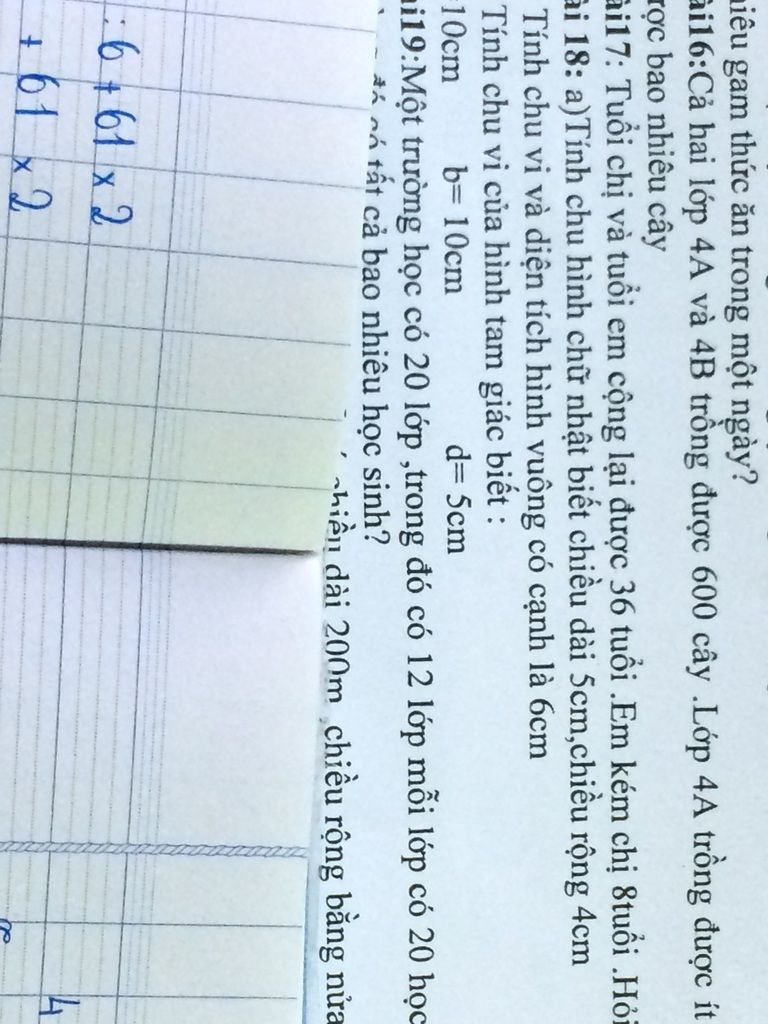 hiêu gam thức ăn trong một ngày?
ài16:Cả hai lớp 4A và 4B trồng được 600 cây .Lớp 4A trồng được ít
ược bao nhiêu cây
ài17: Tuổi chị và tuổi em cộng lại được 36 tuổi .Em kém chị 8tuổi .Hỏi
ài 18: a)Tính chu hình chữ nhật biết chiều dài 5cm,chiều rộng 4cm
Tính chu vi và diện tích hình vuông có cạnh là 6cm
Tính chu vi của hình tam giác biết :
=10cm b= 10cm d= 5cm
ài19:Một trường học có 20 lớp ,trong đó có 12 lớp mỗi lớp có 20 học
đó có tất cả bao nhiêu học sinh?
chiều dài 200m ,chiều rộng bằng nửa
: 6 + 61 x 2
+ 61 x 2
4